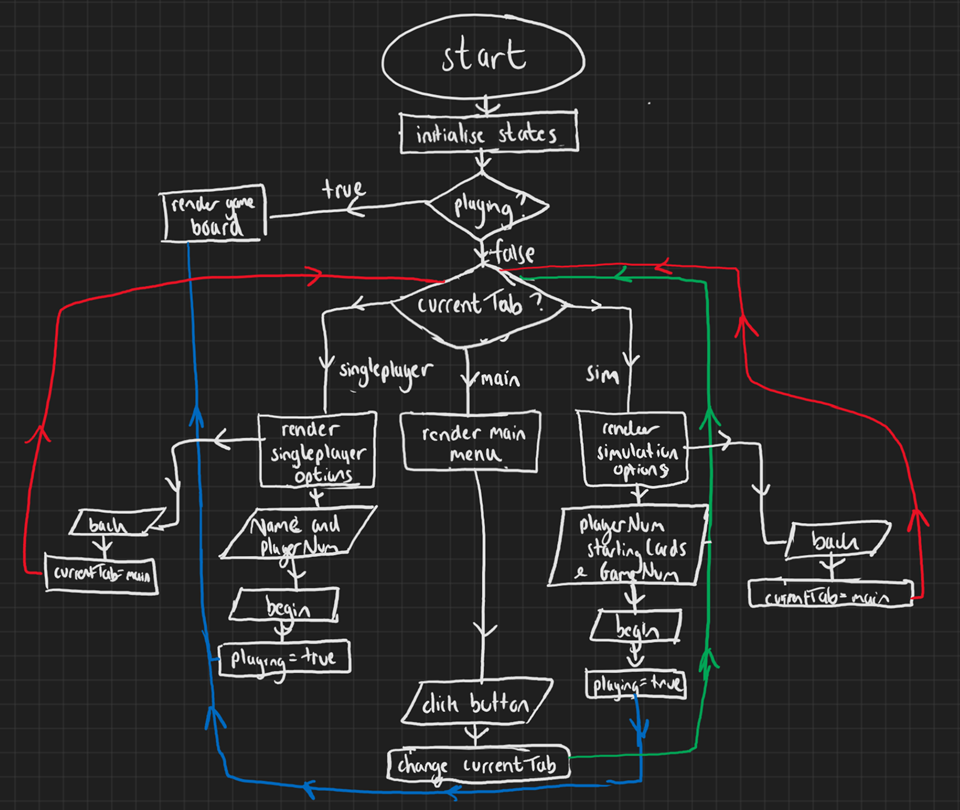 start
initialise states
playing?
true
render game
board
false
currentTab?
singleplayer
main
sim
render
singleplayer
options
render main
menu
render
simulation
options
back
currentTab=main
Name and
playerNum
begin
playing=true
playerNum
starting Cards
& GameNum
begin
playing=true
back
currentTab=main
click button
change currentTab